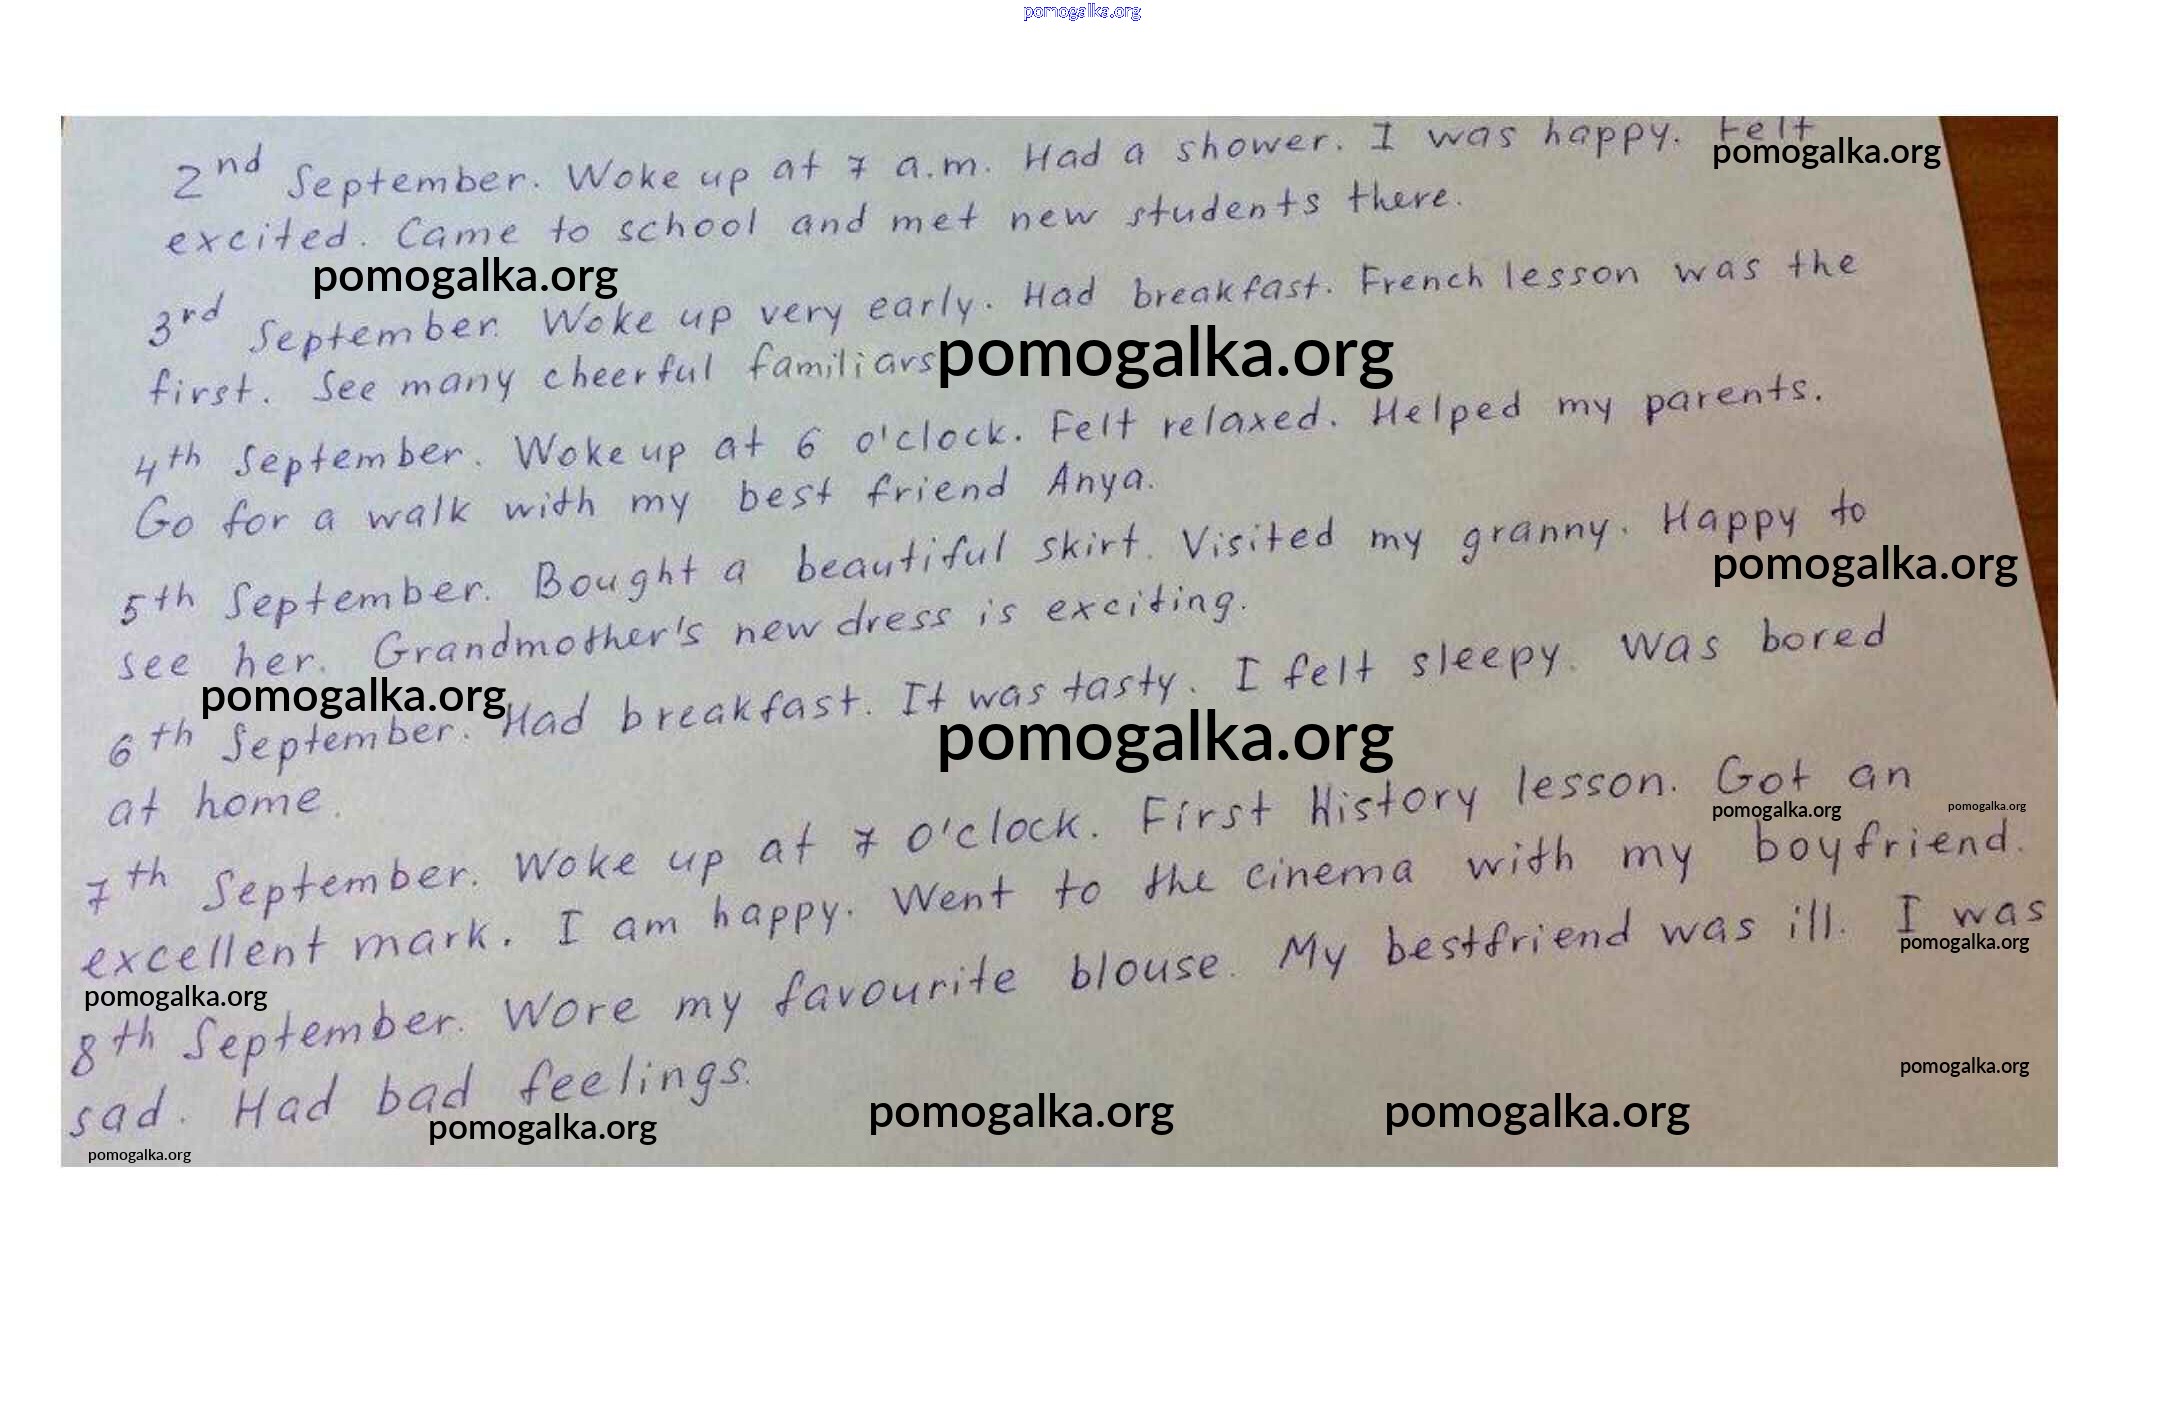 pomogalka.org
2nd September. Woke up at 7 a.m. Had a shower. I was happy. Felt
pomogalka.org
excited. Came to school and met new students there.
pomogalka.org
3rd September. Woke up very early. Had breakfast. French lesson was the
first. See many cheerful familiars
pomogalka.org
4th September. Woke up at 6 o'clock. Felt relaxed. Helped my parents.
Go for a walk with my best friend Anya.
5th September. Bought a beautiful skirt. Visited my granny. Happy to
pomogalka.org
see her. Grandmother's new dress is exciting.
pomogalka.org
6th September. Had breakfast. It was tasty. I felt sleepy. Was bored
pomogalka.org
at home.
7th September. Woke up at 7 o'clock. First History lesson. Got an
pomogalka.org
pomogalka.org
excellent mark. I am happy. Went to the cinema with my boyfriend.
pomogalka.org
pomogalka.org
8th September. Wore my favourite blouse. My bestfriend was ill. I was
sad. Had bad feelings.
pomogalka.org
pomogalka.org
pomogalka.org
pomogalka.org
pomogalka.org